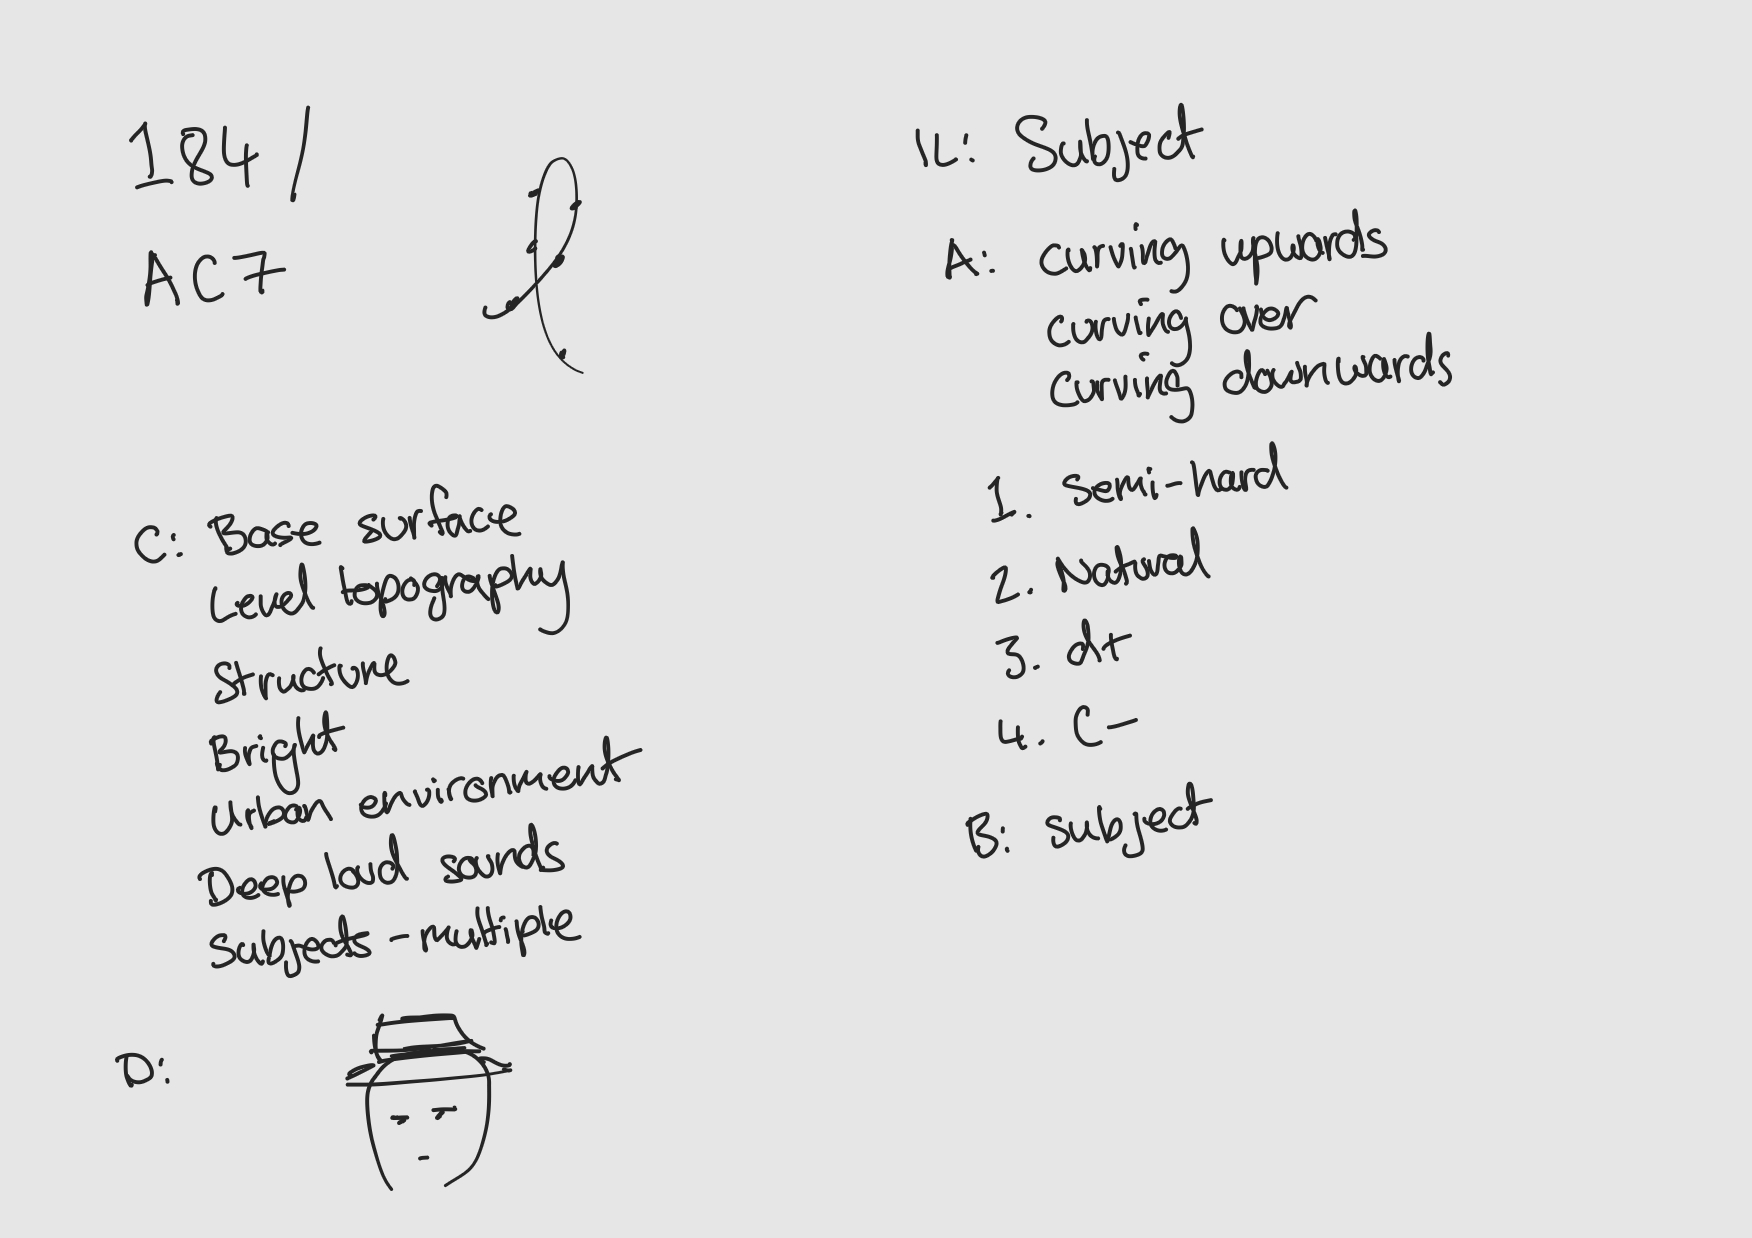 184/
AC7
C: Base surface
Level topography
Structure
Bright
Urban environment
Deep loud sounds
Subjects - multiple
D:
IL: Subject
A: curving upwards
curving over
curving downwards
1. semi-hard
2. Natural
3. d+
4. C-
B: subject